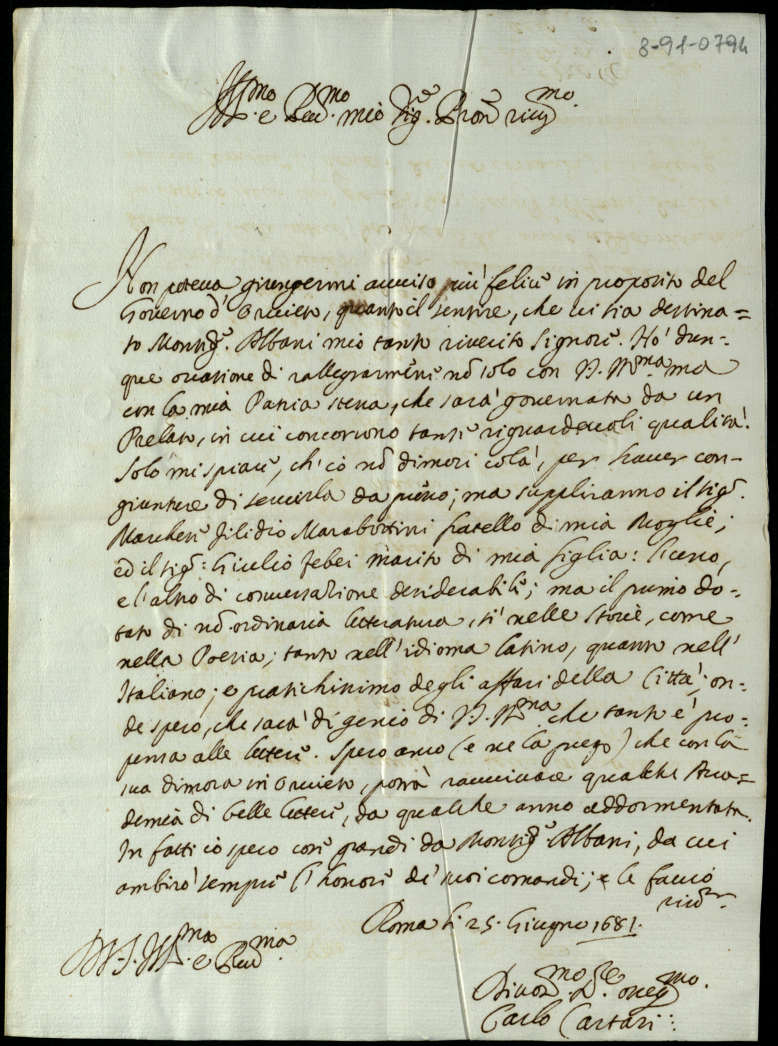 8-91-0794
Ill.mo e Rev.mo mio Sig.re Pron riv.mo
Non poteva giungermi auuiso più felice in proposito del
Gouerno d'Oruieto, quanto il sentire, che ui sia destina=
to Monsig.r Albani mio tanto riuerito Signore. Hò dun-
que occasione di rallegrarmene nõ solo con V.S. Ill.ma ma
con la mia Patria stessa, che sarà gouernata da un
Prelato, in cui concorrono tante riguardeuoli qualità.
Solo mi spiace, ch'io nõ dimori colà, per hauer con-
giunture di seruirla da uicino; ma suppliranno il Sig.r
Marchese Filidio Marabottini fratello di mia Moglie,
ed il Sig.r Giulio Febei marito di mia figlia: l'uno,
e l'altro di conuersatione desiderabile; ma il primo do-
tato di nõ ordinaria letteratura, sì nelle storie, come
nella Poesia; tanto nell'idioma latino, quanto nell'
Italiano; e pratichissimo degli affari della Città; on-
de spero, che sarà di genio di V.S. Ill.ma che tanto è pro-
pensa alle lettere. Spero anco (e ne la prego) che con la
sua dimora in Oruieto, potrà rauuiuare qualche Acca=
demia di belle lettere, da qualche anno addormentata.
In fatti io spero cose grandi da Monsig.r Albani, da cui
ambirò sempre l'honore de' suoi comandi; e le faccio
riu.za
Roma li 25. Giugno 1681.
Di V.S. Ill.ma e Rev.ma
Diuot.mo Ser.e oblig.mo
Carlo Cartari: